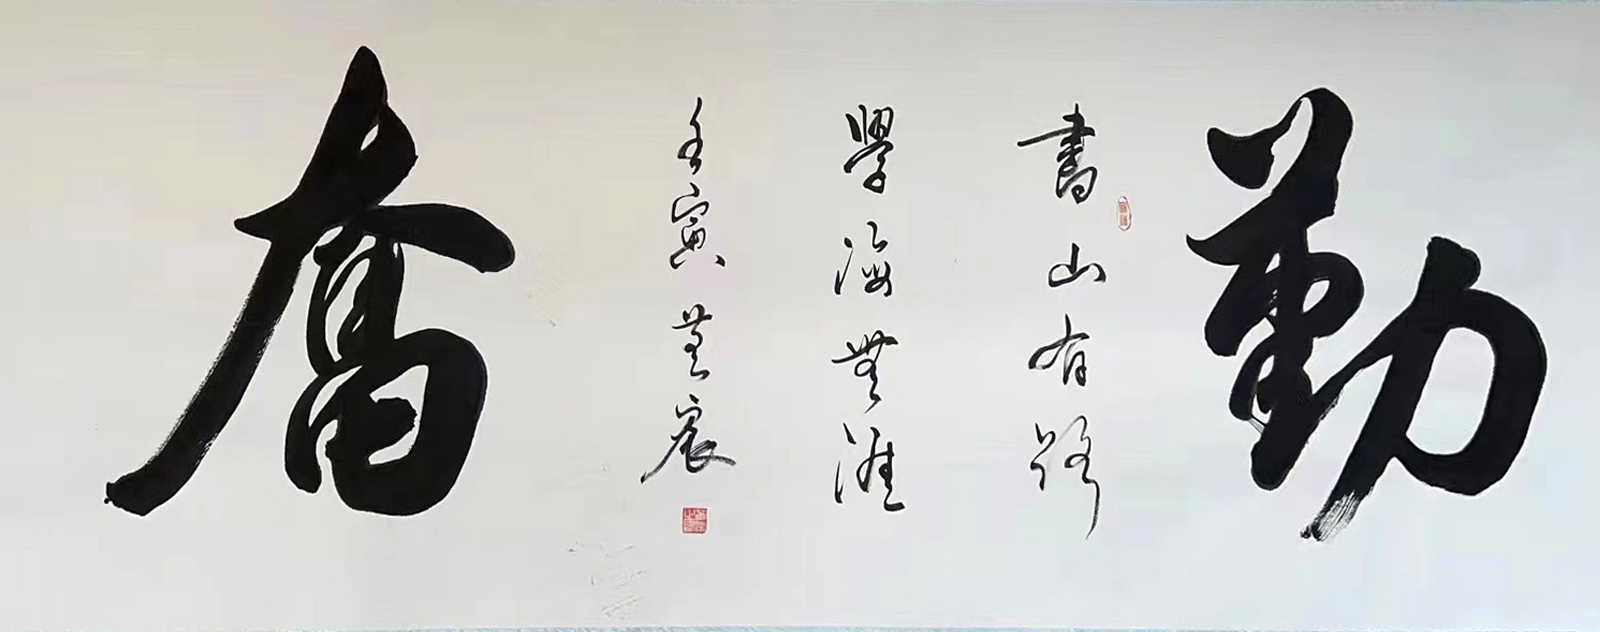 勤
書山有路
學海無涯
壬寅
奮